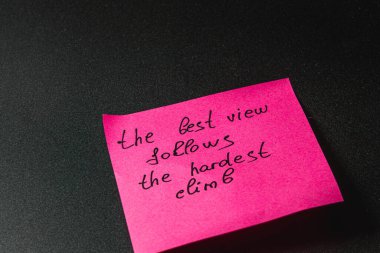 the best view
follows
the hardest
climb